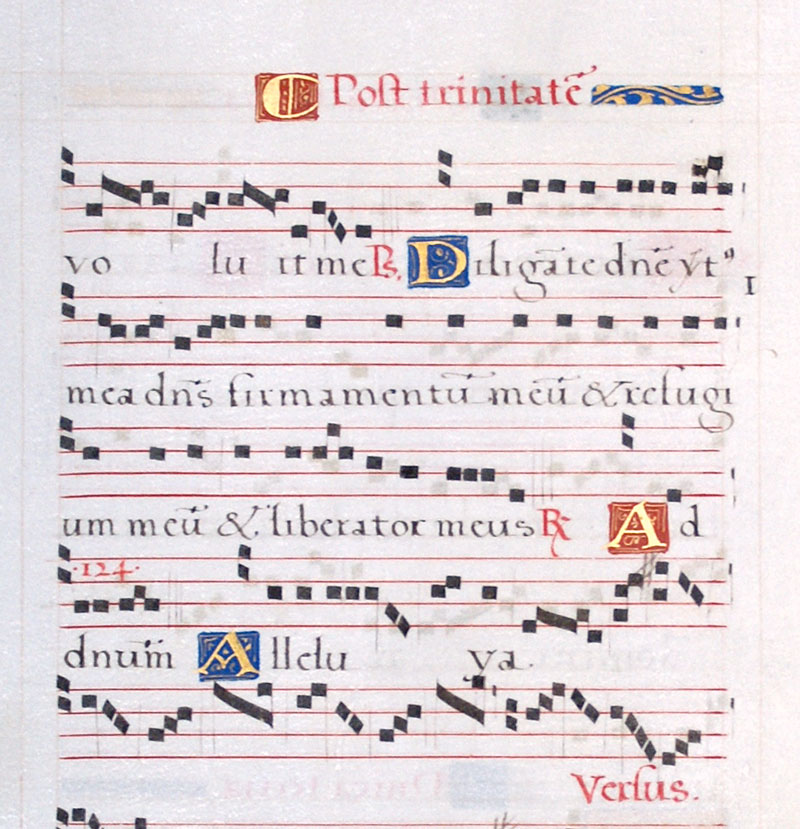 C Post trinitatē
vo lu it me Ps. Diligā te dn̄e v̄t⁹
mea dn̄s firmamentū meū & refugi
um meū & liberator meus R̸ Ad
.124.
dnum̄ Allelu ya.
Versus.